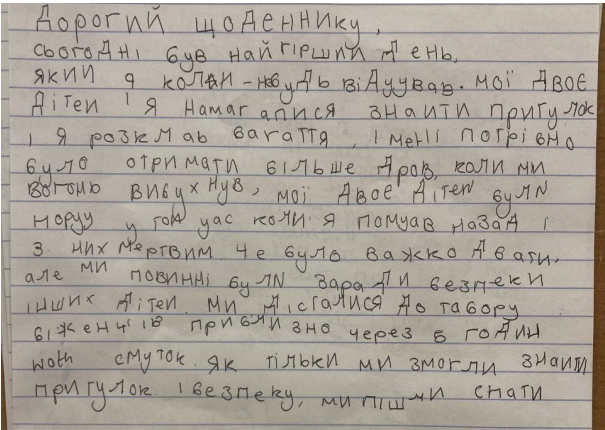 Дорогий щоденнику,
сьогодні був найгірший день,
який я коли-небудь відчував. мої двоє
дітей і я намагалися знайти притулок
і я розклав багаття, і мені потрібно
було отримати більше дров, коли ми
вогонь вибухнув, мої двоє дітей були
поруч у той час коли я помчав назад і
з них мертвим. Че було важко двати,
але ми повинні були заради безпеки
інших дітей. ми дісталися до табору
біженців приблизно через 5 годин
woth смуток. як тільки ми змогли знайти
притулок і безпеку, ми пішли спати